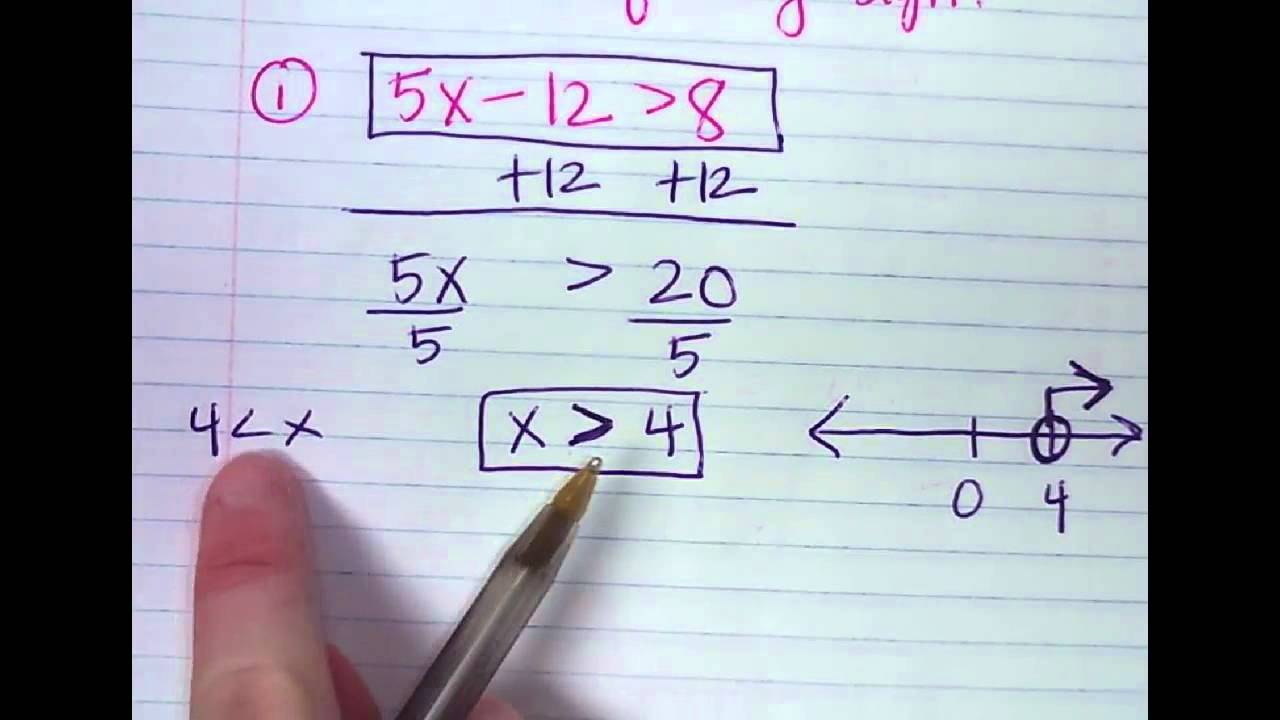 ① 5x - 12 > 8
+12 +12
5x > 20
5 5
4 < x x > 4
0 4